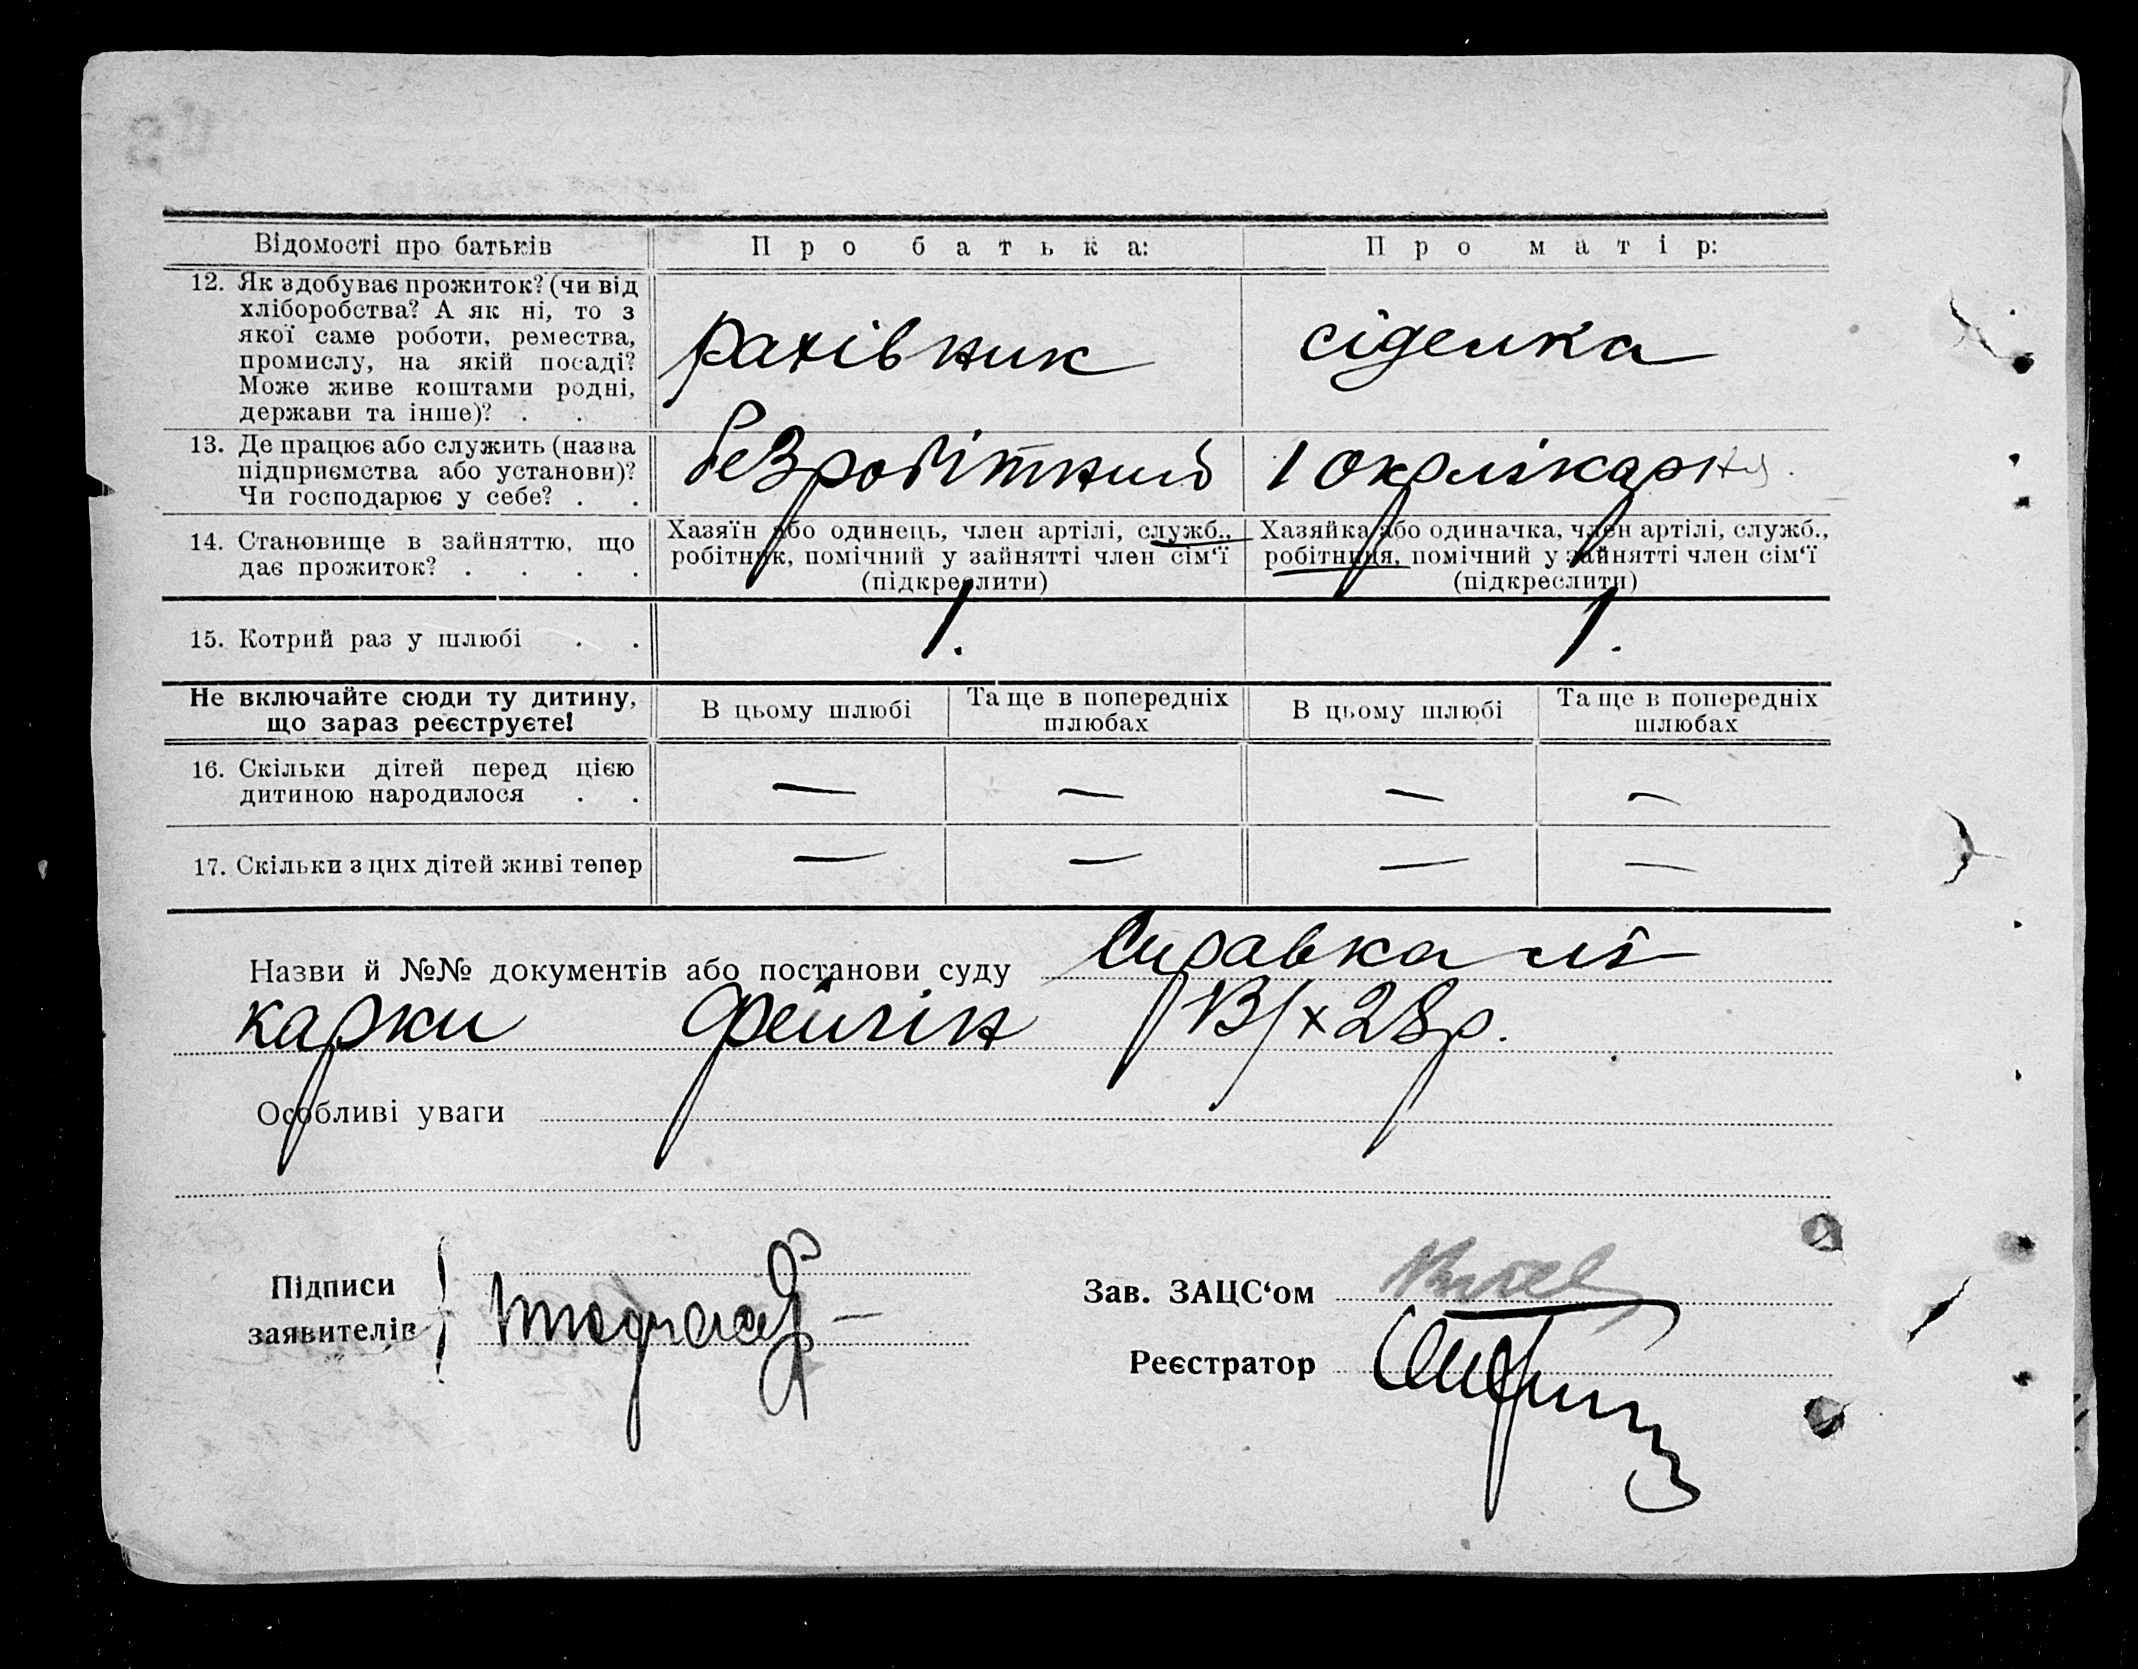 Відомості про батьків Про батька: Про матір:
12. Як здобуває прожиток? (чи від
хліборобства? А як ні, то з
якої саме роботи, ремества,
промислу, на якій посаді?
Може живе коштами родні,
держави та інше)? . .
рахівник сіделка
13. Де працює або служить (назва
підприємства або установи)?
Чи господарює у себе? . .
безробітний 1 окрлікарня.
14. Становище в зайняттю, що
дає прожиток? . . . .
Хазяїн або одинець, член артілі, служб.,
робітник, помічний у зайнятті член сім‘ї
(підкреслити)
Хазяйка або одиначка, член артілі, служб.,
робітниця, помічний у зайнятті член сім‘ї
(підкреслити)
15. Котрий раз у шлюбі . . 1. 1.
Не включайте сюди ту дитину,
що зараз реєструєте!
В цьому шлюбі
Та ще в попередніх
шлюбах
В цьому шлюбі
Та ще в попередніх
шлюбах
16. Скільки дітей перед цією
дитиною народилося . .
— — — —
17. Скільки з цих дітей живі тепер — — — —
Назви й №№ документів або постанови суду Справка лі-
карки Фейгін 13/X 28р.
Особливі уваги
Підписи
заявителів
Зав. ЗАЦС‘ом
Реєстратор